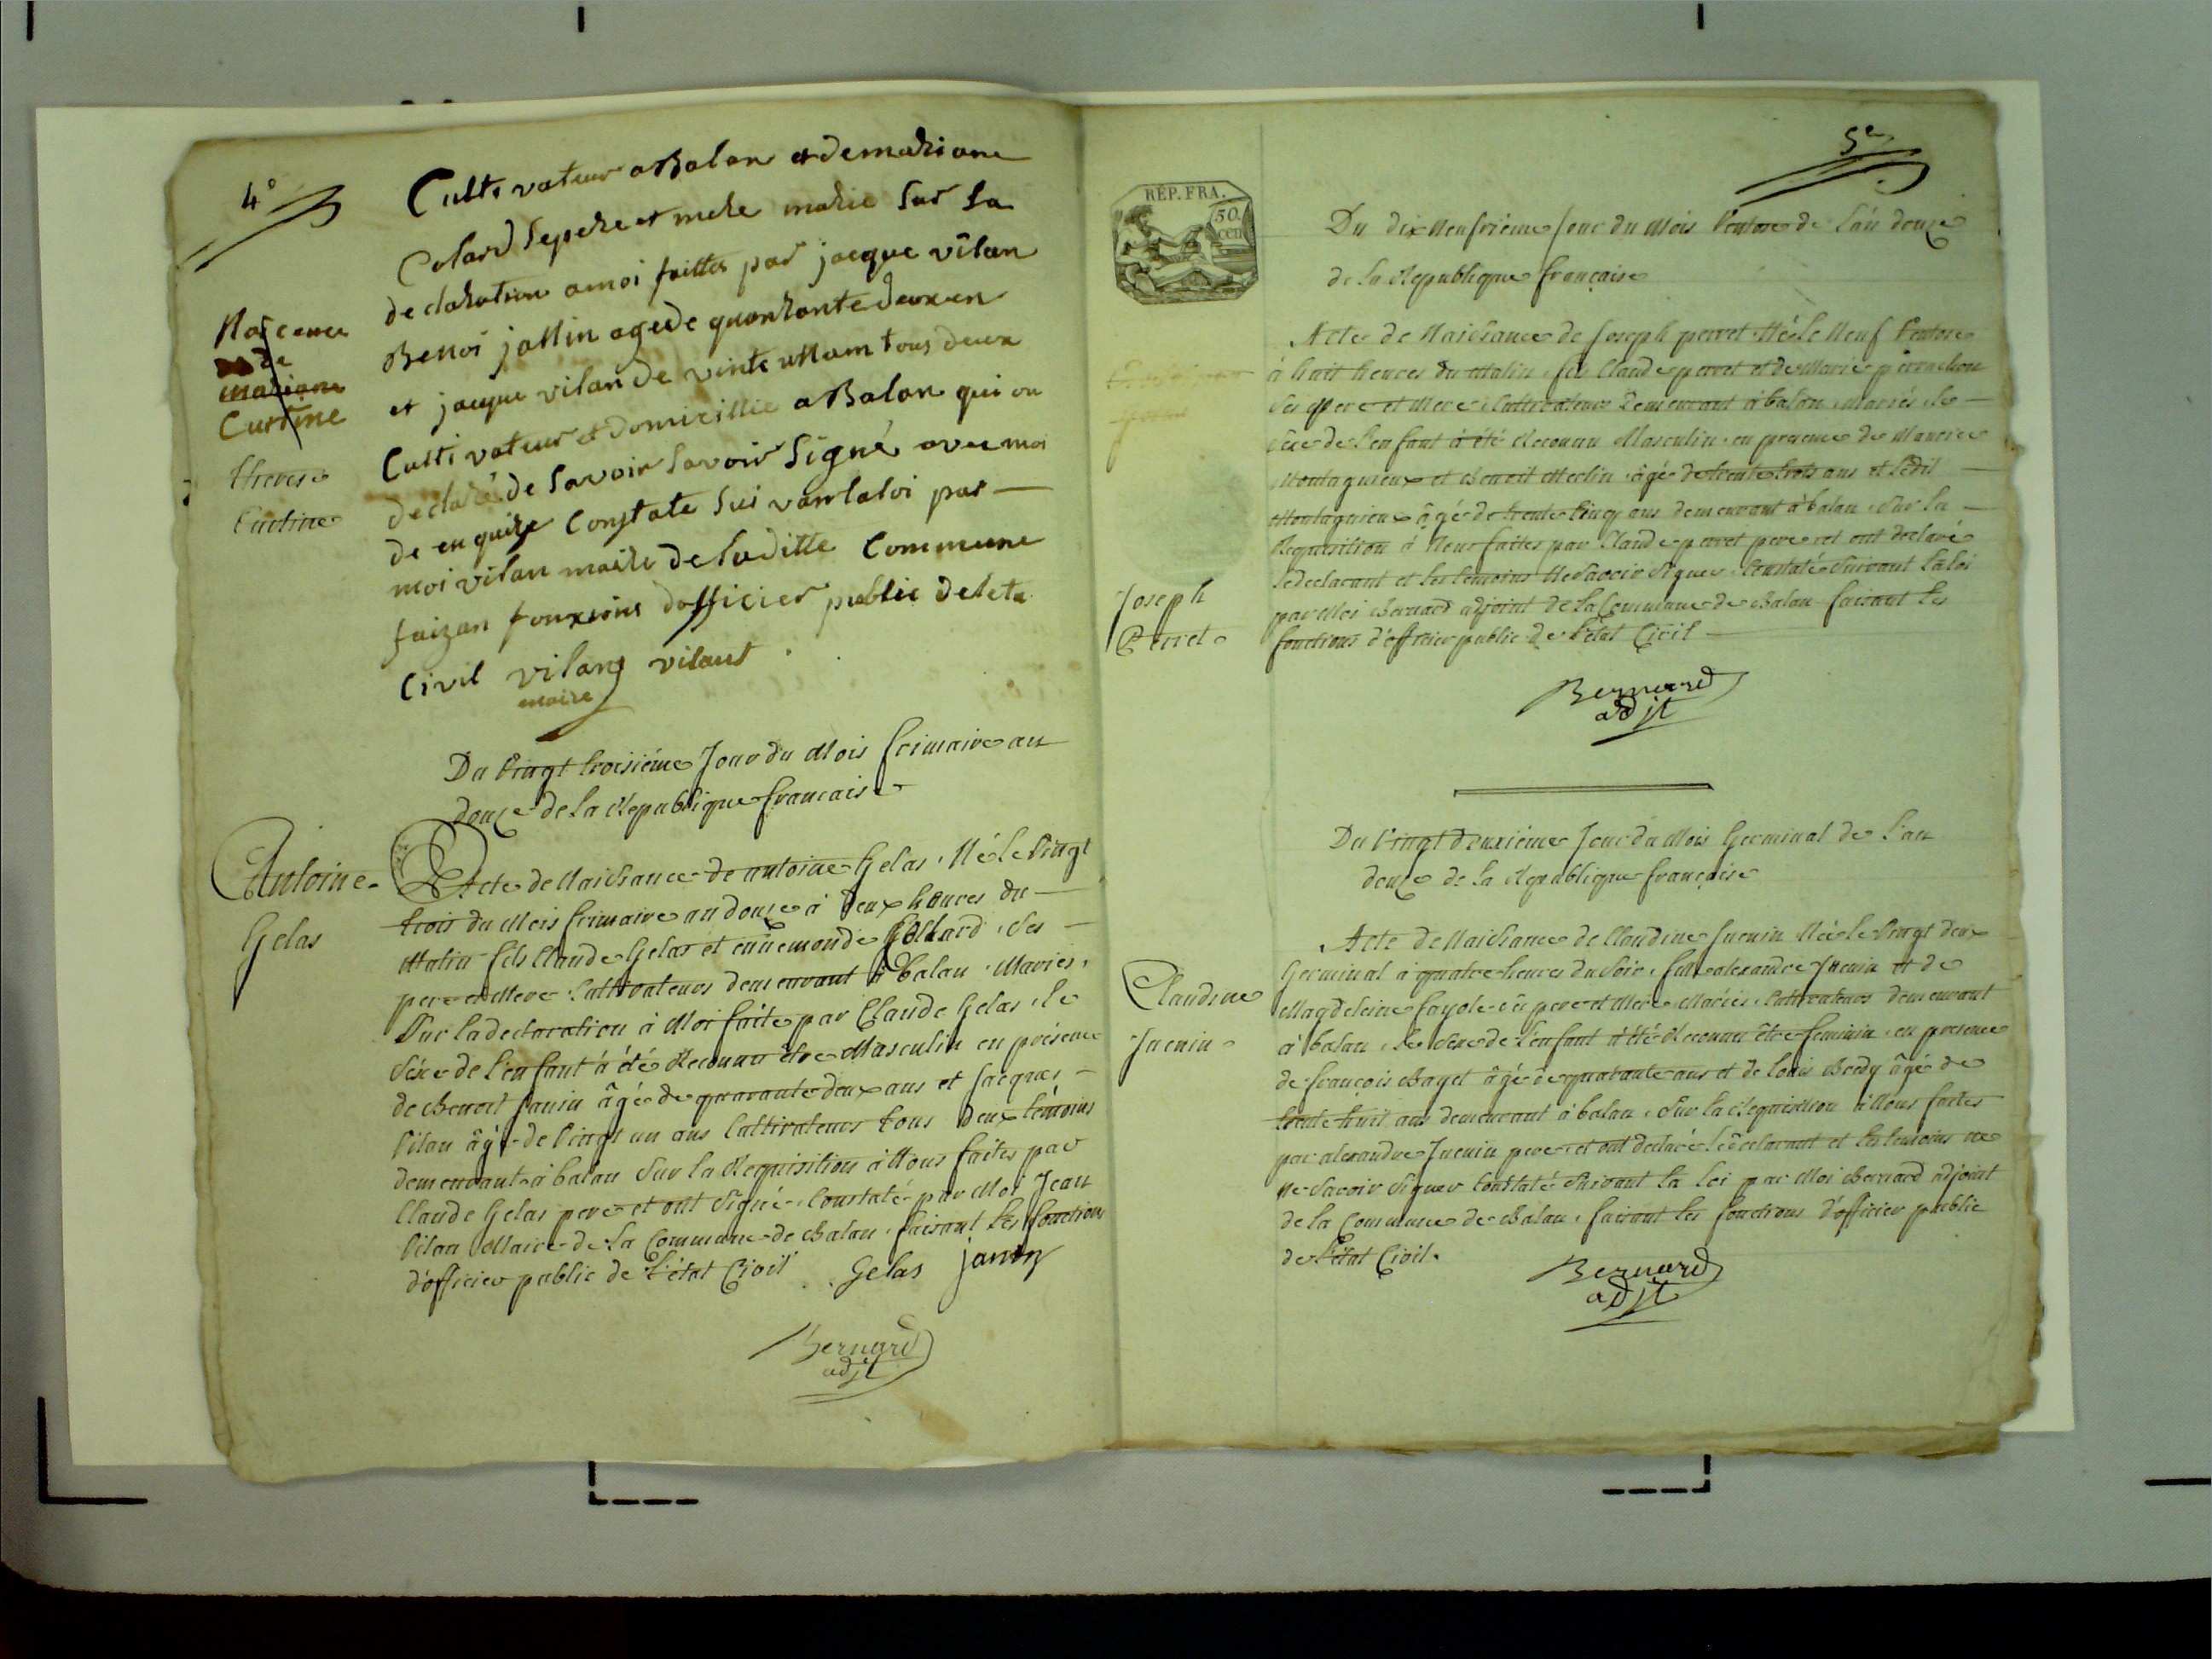 4e
Cultivateur a Balan et de mariane
Colard se pere et mere marie sur la
declaration a moi faittes par jacque vilan
Benoi jannin agede quaurante deux an
et jacque vilan de vinte unnam tous deux
Cultivateur et domicillie a Balan qui on
declaré de savoir savoir signé avec moi
de en quize Constate sui van la loi par
moi vilan maire de laditte Commune
faizan fonxsions dofficier public de leta
Civil vilang vilant
maire
Nascence
de
mariane
Curtine
therese
Curtine
Du Vingt troisiéme Jour du Mois frimaire an
douze de la Republique francaise
Antoine
Gelas
Acte de Naissance de antoine Gelas, Né le Vingt
trois du Mois frimaire an douze à deux heures du
Matin fils Claude Gelas et ennemonde Gollard, ses
pere et Mere Cultivateurs demeurant à balan, Mariés,
Sur la declaration à Moi faite par Claude Gelas, le
Séxe de l'enfant à été Reconnu être Masculin en présence
de Benoit Janin âgé de quarante deux ans et Jacques
Vilan âgé de Vingt un ans Cultivateurs tous deux témoins
demeurant à balan Sur la Requisition à Nous faites par
Claude Gelas pere et ont Signé, Constaté par Moi Jean
Vilan Maire de la Commune de Balan, faisant les fonctions
d'officier public de l'état Civil Gelas janin
Bernard
adjt
RÉP. FRA.
50
cen
5e
Du dix Neufvieme Jour du Mois Ventose de l'an douze
de la Republique française
Joseph
Perret
Acte de Naissance de Joseph perret Né le Neuf Ventose
à huit heures du Matin, fils Claude perret et de Marie perrachon
Ses Pere et Mere, Cultivateurs demeurant à balan, mariés, le
Séxe de l'enfant à été Reconnu Masculin, en presence de Maurice
Montagnieux et Benoit Merlin, âgé de trente trois ans et ledit
Montagnieux âgé de trente Cinq ans demeurant à balan, Sur la
Requisition à Nous faites par Claude perret pere et ont declaré
le declarant et les temoins Ne Savoir Signer, Constaté Suivant la loi
par Moi Bernard adjoint de la Commune de Balan faisant les
fonctions d'officier public de l'état Civil
Bernard
adjt
Du Vingt deuxiéme Jour du Mois Germinal de l'an
douze de la Republique française
Claudine
Juenin
Acte de Naissance de Claudine Juenin Née le Vingt deux
Germinal à quatre heures du Soir, fille alexandre Juenin et de
Magdeleine fayole ses pere et Mere Mariés, Cultivateurs demeurant
à balan, le Séxe de l'enfant à été Reconnu être feminin, en presence
de françois Bayet âgé de quarante ans et de louis Bordy âgé de
trente huit ans demeurant à balan, Sur la Requisition à Nous faites
par alexandre Juenin pere et ont declaré le declarant et les temoins ne
Ne Savoir Signer Constaté Suivant la loi par Moi Bernard adjoint
de la Commune de Balan, faisant les fonctions d'officier public
de l'état Civil.
Bernard
adjt